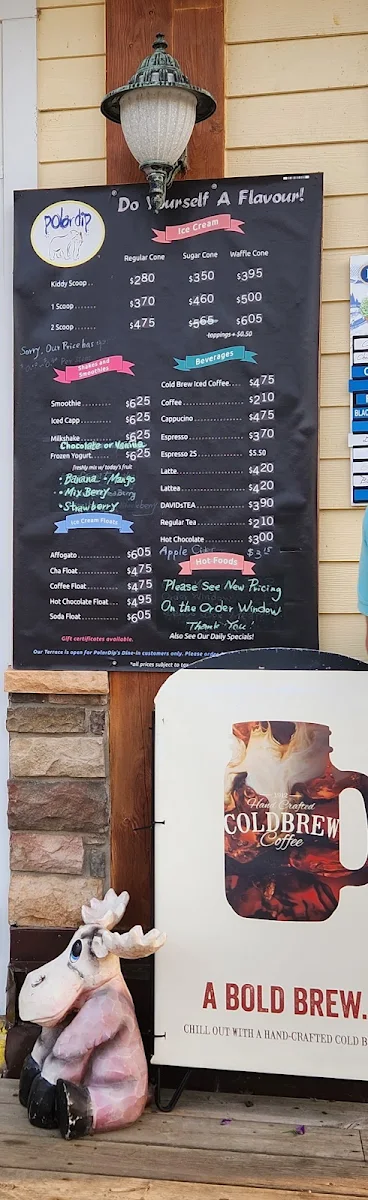 Do Yourself A Flavour!
polardip
Ice Cream
Regular Cone Sugar Cone Waffle Cone
Kiddy Scoop .. $2.80 $3.50 $3.95
1 Scoop ...... $3.70 $4.60 $5.00
2 Scoop ....... $4.75 $5.65 $6.05
toppings + $0.50
Sorry, Our Price has
Shakes and
Smoothies
Smoothie .......... $6.25
Iced Capp .......... $6.25
Milkshake $6.25
Chocolate or Vanilla
Frozen Yogurt......... $6.25
freshly mix w/ today's fruit
• Banana • Mango
• Mix Berry
• Strawberry
Ice Cream Floats
Affogato ............. $6.05
Cha Float ............ $4.75
Coffee Float ......... $4.75
Hot Chocolate Float... $4.95
Soda Float ........... $6.05
Beverages
Cold Brew Iced Coffee.... $4.75
Coffee .............. $2.10
Cappucino ........... $4.75
Espresso ............ $3.70
Espresso 2S ......... $5.50
Latte................ $4.20
Lattea .............. $4.20
DAVIDsTEA ........... $3.90
Regular Tea ......... $2.10
Hot Chocolate ....... $3.00
Apple Cider $3.15
Hot Foods
Please See New Pricing
On the Order Window
Thank You!
Also See Our Daily Specials!
Gift certificates available.
Our Terrace is open for PolarDip's Dine-in customers only. Please order
*all prices subject to
Hand Crafted
COLDBREW
Coffee
A BOLD BREW.
CHILL OUT WITH A HAND-CRAFTED COLD B
BLAC